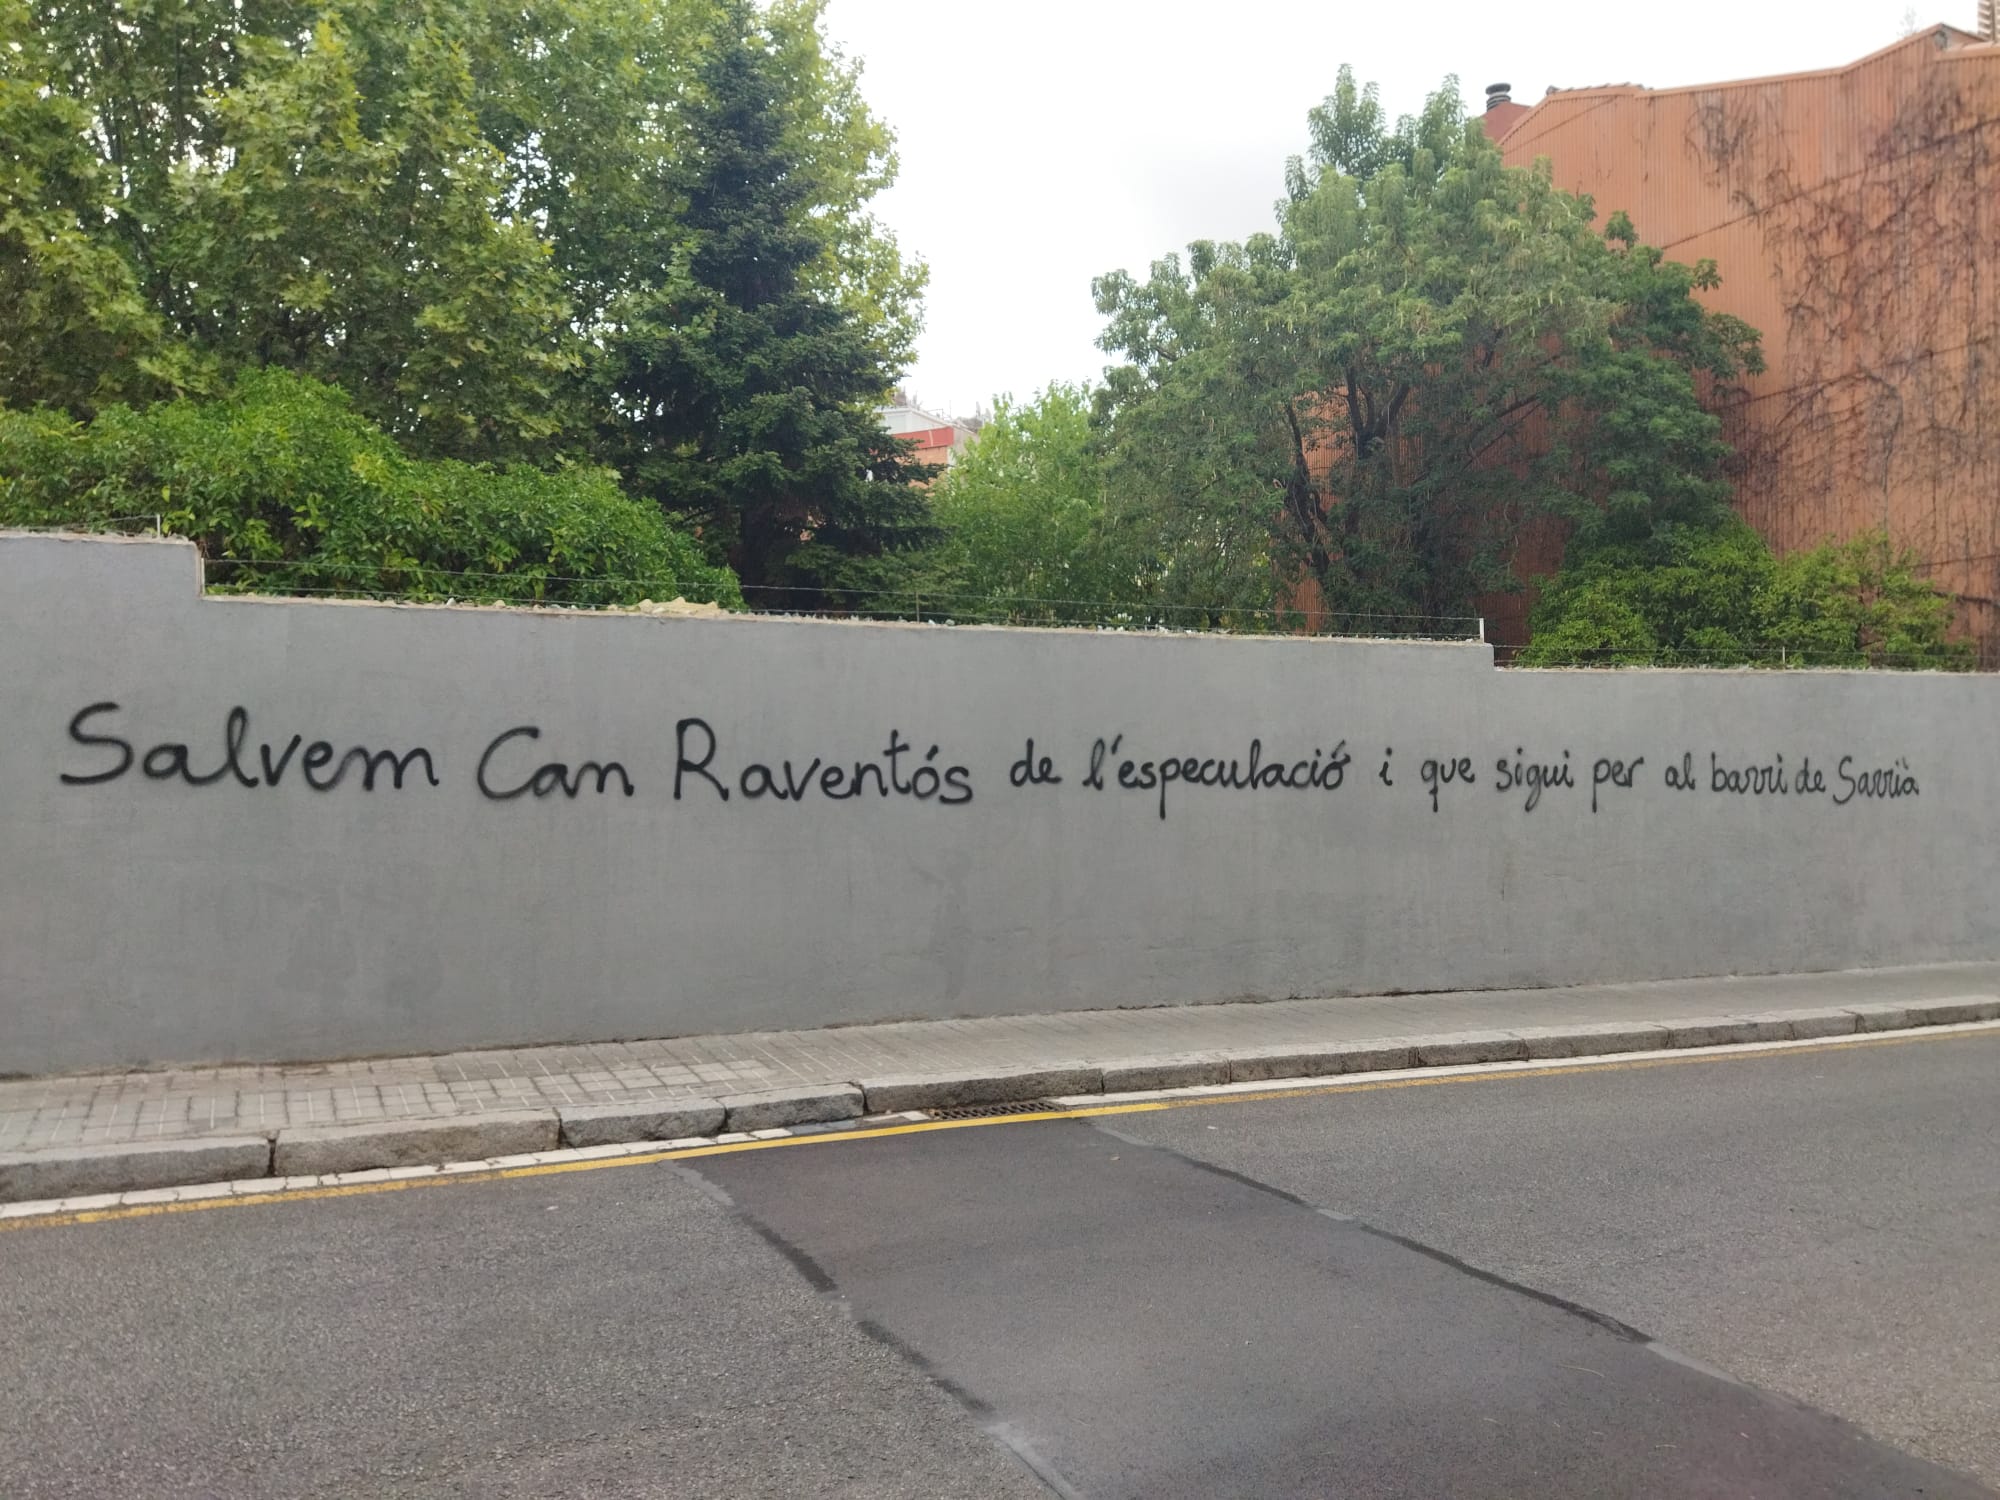 Salvem Can Raventós de l'especulació i que sigui per al barri de Sarrià